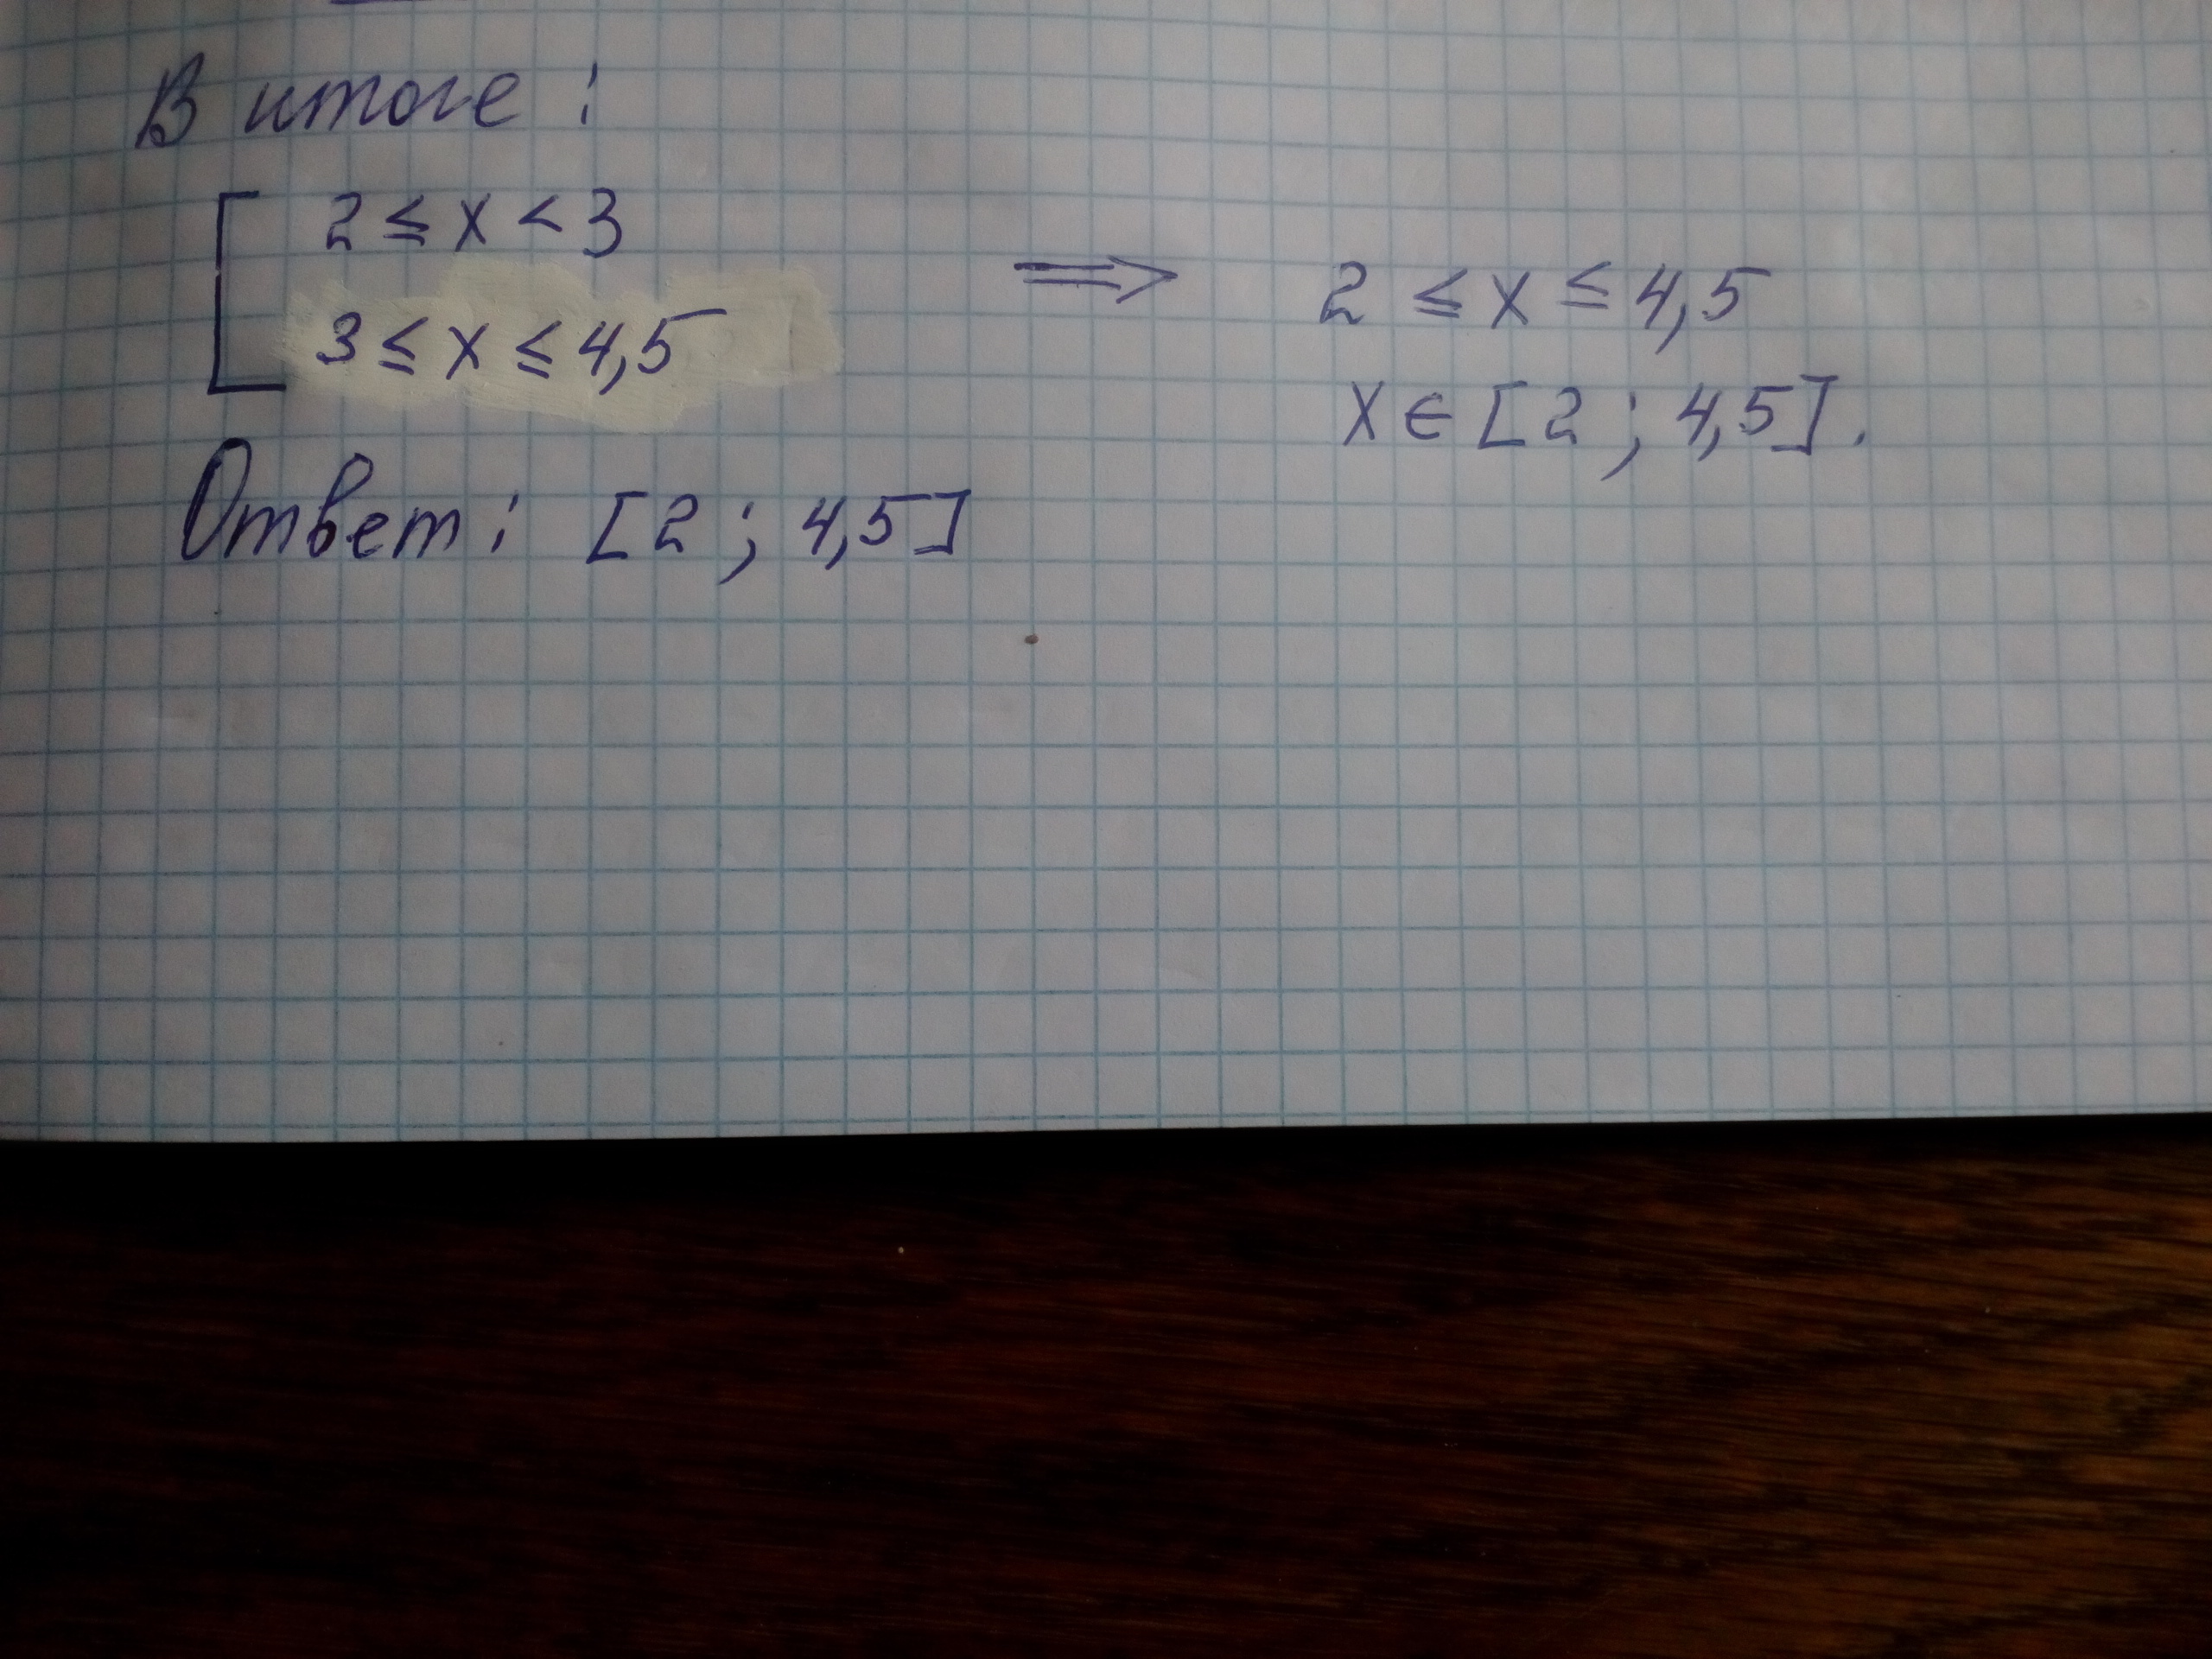 В итоге:
[ 2 ≤ x < 3
3 ≤ x ≤ 4,5
⟹ 2 ≤ x ≤ 4,5
x ∈ [2 ; 4,5].
Ответ: [2 ; 4,5]